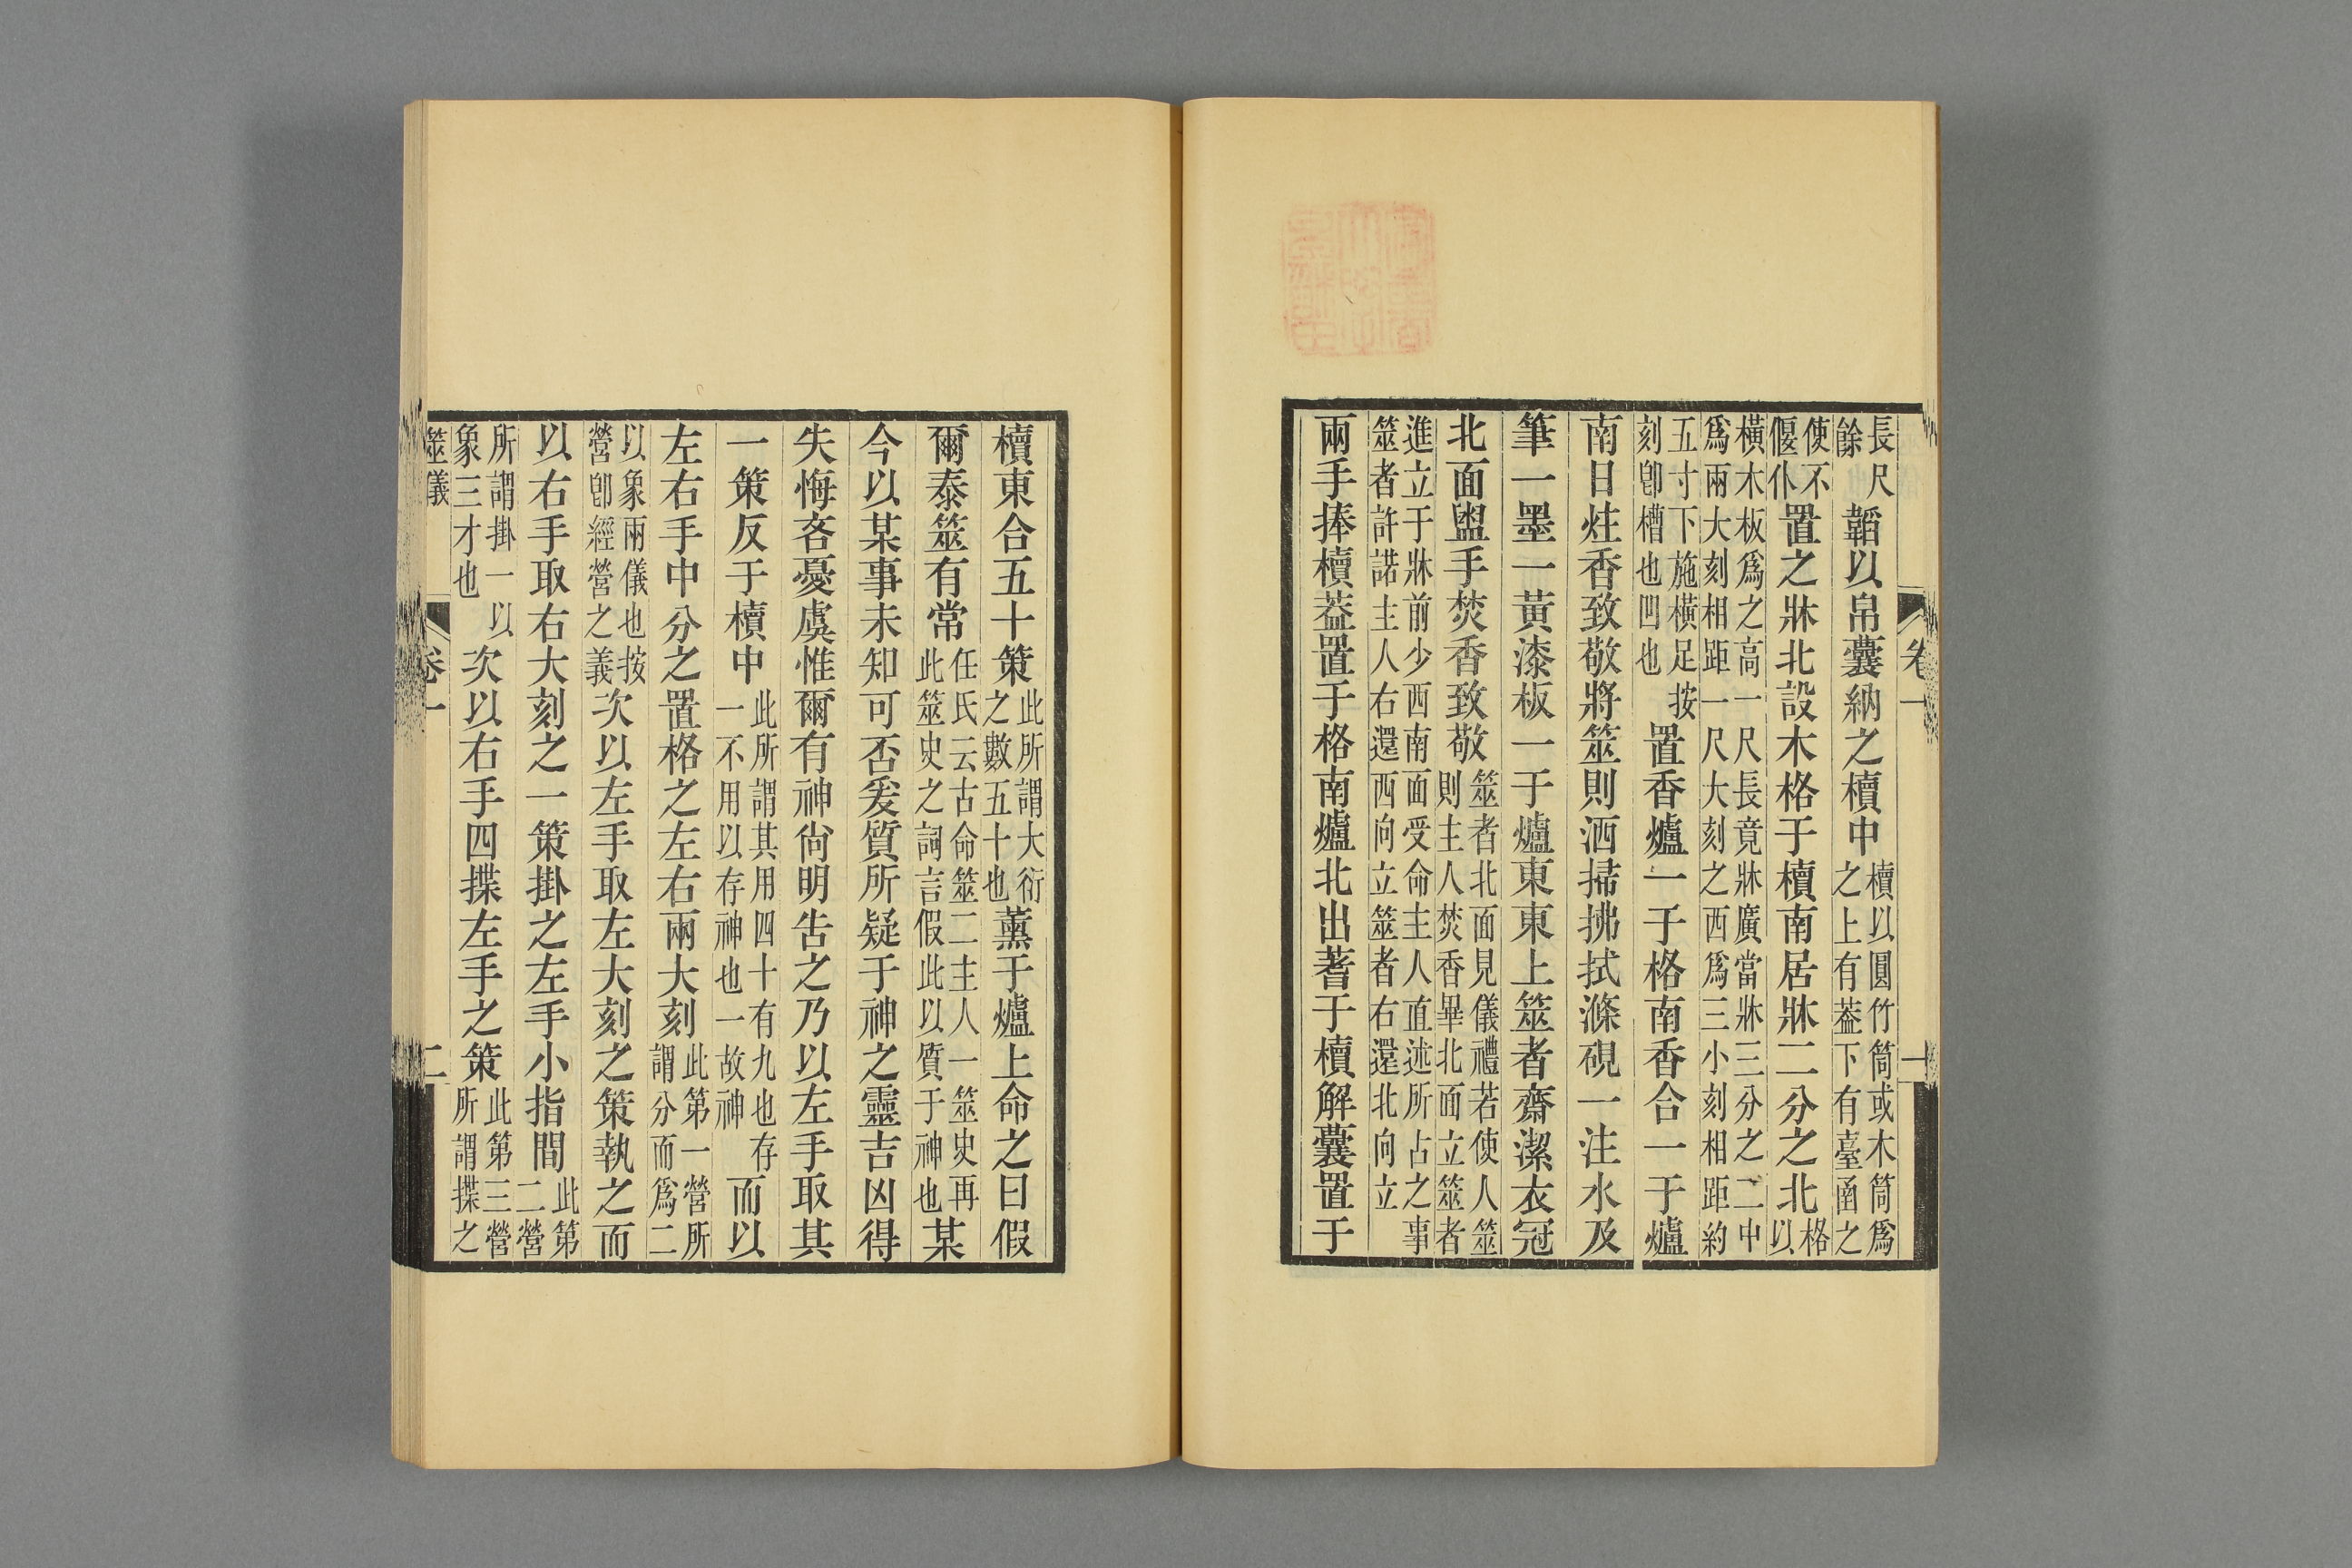 卷一
一
長尺
餘
韜以帛囊納之櫝中
櫝以圓竹筒或木筒爲
之上有葢下有臺函之
使不
偃仆
置之牀北設木格于櫝南居牀二分之北
格
以
橫木板爲之高一尺長竟牀廣當牀三分之二中
爲兩大刻相距一尺大刻之西爲三小刻相距約
五寸下施橫足按
刻卽槽也凹也
置香爐一于格南香合一于爐
南日炷香致敬將筮則洒掃拂拭滌硯一注水及
筆一墨一黃漆板一于爐東東上筮者齋潔衣冠
北面盥手焚香致敬
筮者北面見儀禮若使人筮
則主人焚香畢北面立筮者
進立于牀前少西南面受命主人直述所占之事
筮者許諾主人右還西向立筮者右還北向立
兩手捧櫝葢置于格南爐北出蓍于櫝解囊置于
櫝東合五十策
此所謂大衍
之數五十也
薰于爐上命之曰假
爾泰筮有常
任氏云古命筮二主人一筮史再
此筮史之詞言假此以質于神也
某
今以某事未知可否爰質所疑于神之靈吉凶得
失悔吝憂虞惟爾有神尙明告之乃以左手取其
一策反于櫝中
此所謂其用四十有九也存
一不用以存神也一故神
而以
左右手中分之置格之左右兩大刻
此第一營所
謂分而爲二
以象兩儀也按
營卽經營之義
次以左手取左大刻之策執之而
以右手取右大刻之一策掛之左手小指間
此第
二營
所謂掛一以
象三才也
次以右手四揲左手之策
此第三營
所謂揲之
筮儀
卷一
二